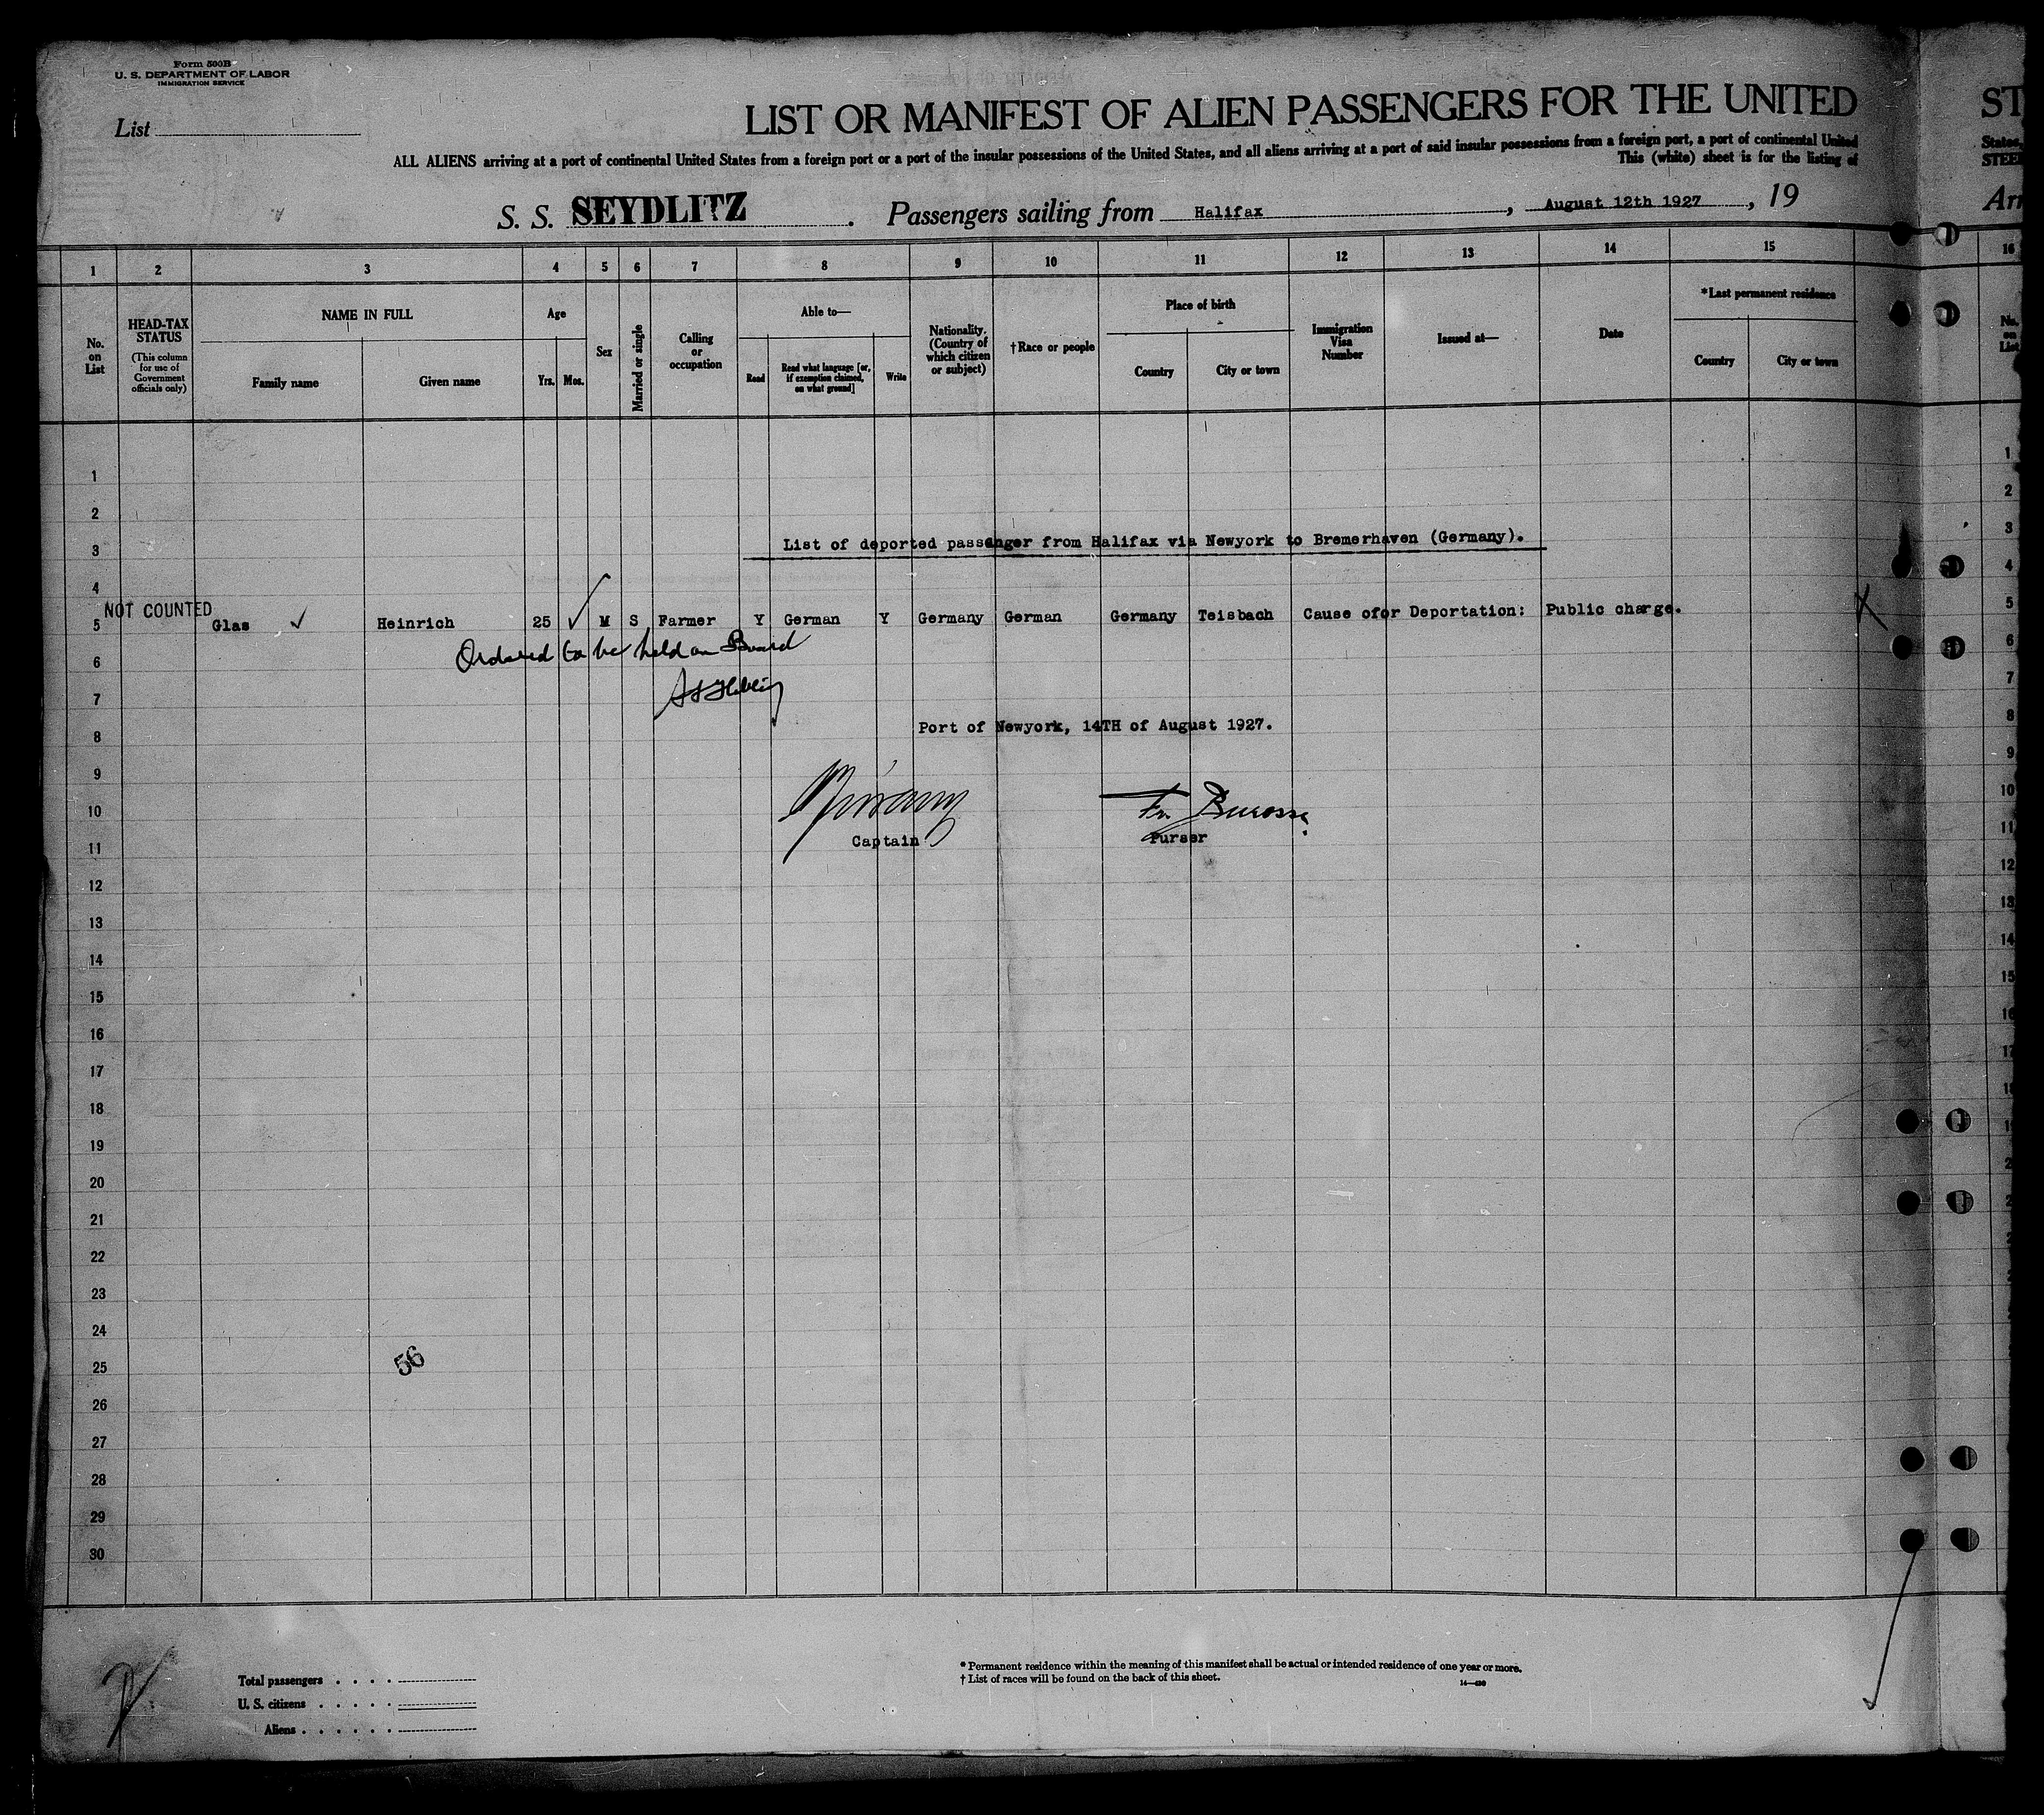 Form 500B
U. S. DEPARTMENT OF LABOR
IMMIGRATION SERVICE
List
LIST OR MANIFEST OF ALIEN PASSENGERS FOR THE UNITED
ST
ALL ALIENS arriving at a port of continental United States from a foreign port or a port of the insular possessions of the United States, and all aliens arriving at a port of said insular possessions from a foreign port, a port of continental United
States,
This (white) sheet is for the listing of
STEE
S. S. SEYDLITZ. Passengers sailing from Halifax, August 12th 1927, 19
Arr
1 2 3 4 5 6 7 8 9 10 11 12 13 14 15 16
No. on List
HEAD-TAX STATUS
(This column for use of Government officials only)
NAME IN FULL
Family name
Given name
Age
Yrs. Mos.
Sex
Married or single
Calling or occupation
Able to—
Read
Read what language [or, if exemption claimed, on what ground]
Write
Nationality. (Country of which citizen or subject)
†Race or people
Place of birth
Country
City or town
Immigration Visa Number
Issued at—
Date
*Last permanent residence
Country
City or town
No. on List
1 1
2 2
3 List of deported passenger from Halifax via Newyork to Bremerhaven (Germany). 3
4 4
NOT COUNTED
5 Glas Heinrich 25 M S Farmer Y German Y Germany German Germany Teisbach Cause ofor Deportation: Public charge. 5
6 Ordered to be held on Board 6
7 7
8 Port of Newyork, 14TH of August 1927. 8
9 9
10 10
11 Captain Purser 11
12 12
13 13
14 14
15 15
16
17
18
19
20
21
22
23
24
25 56
26
27
28
29
30
Total passengers . . . .
U. S. citizens . . . . .
Aliens . . . . . .
* Permanent residence within the meaning of this manifest shall be actual or intended residence of one year or more.
† List of races will be found on the back of this sheet.
14—430